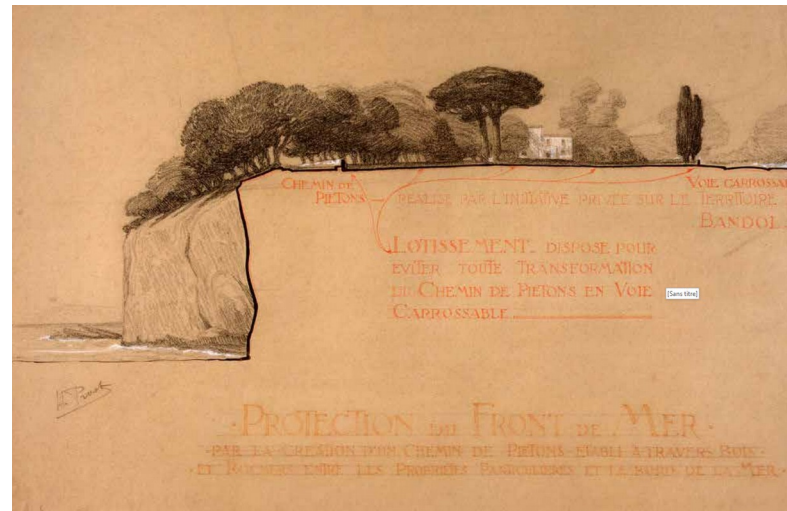 CHEMIN DE
PIETONS
VOIE CARROSSA
RÉALISÉ PAR L'INITIATIVE PRIVÉE SUR LE TERRITOIRE
BANDOL
LOTISSEMENT DISPOSÉ POUR
EVITER TOUTE TRANSFORMATION
DU CHEMIN DE PIETONS EN VOIE
CARROSSABLE
[Sans titre]
H. Prost
·PROTECTION DU FRONT DE MER·
·PAR LA CREATION D'UN CHEMIN DE PIETONS ETABLI A TRAVERS BOIS·
·ET ROCHERS ENTRE LES PROPRIETES PARTICULIERES ET LE BORD DE LA MER·